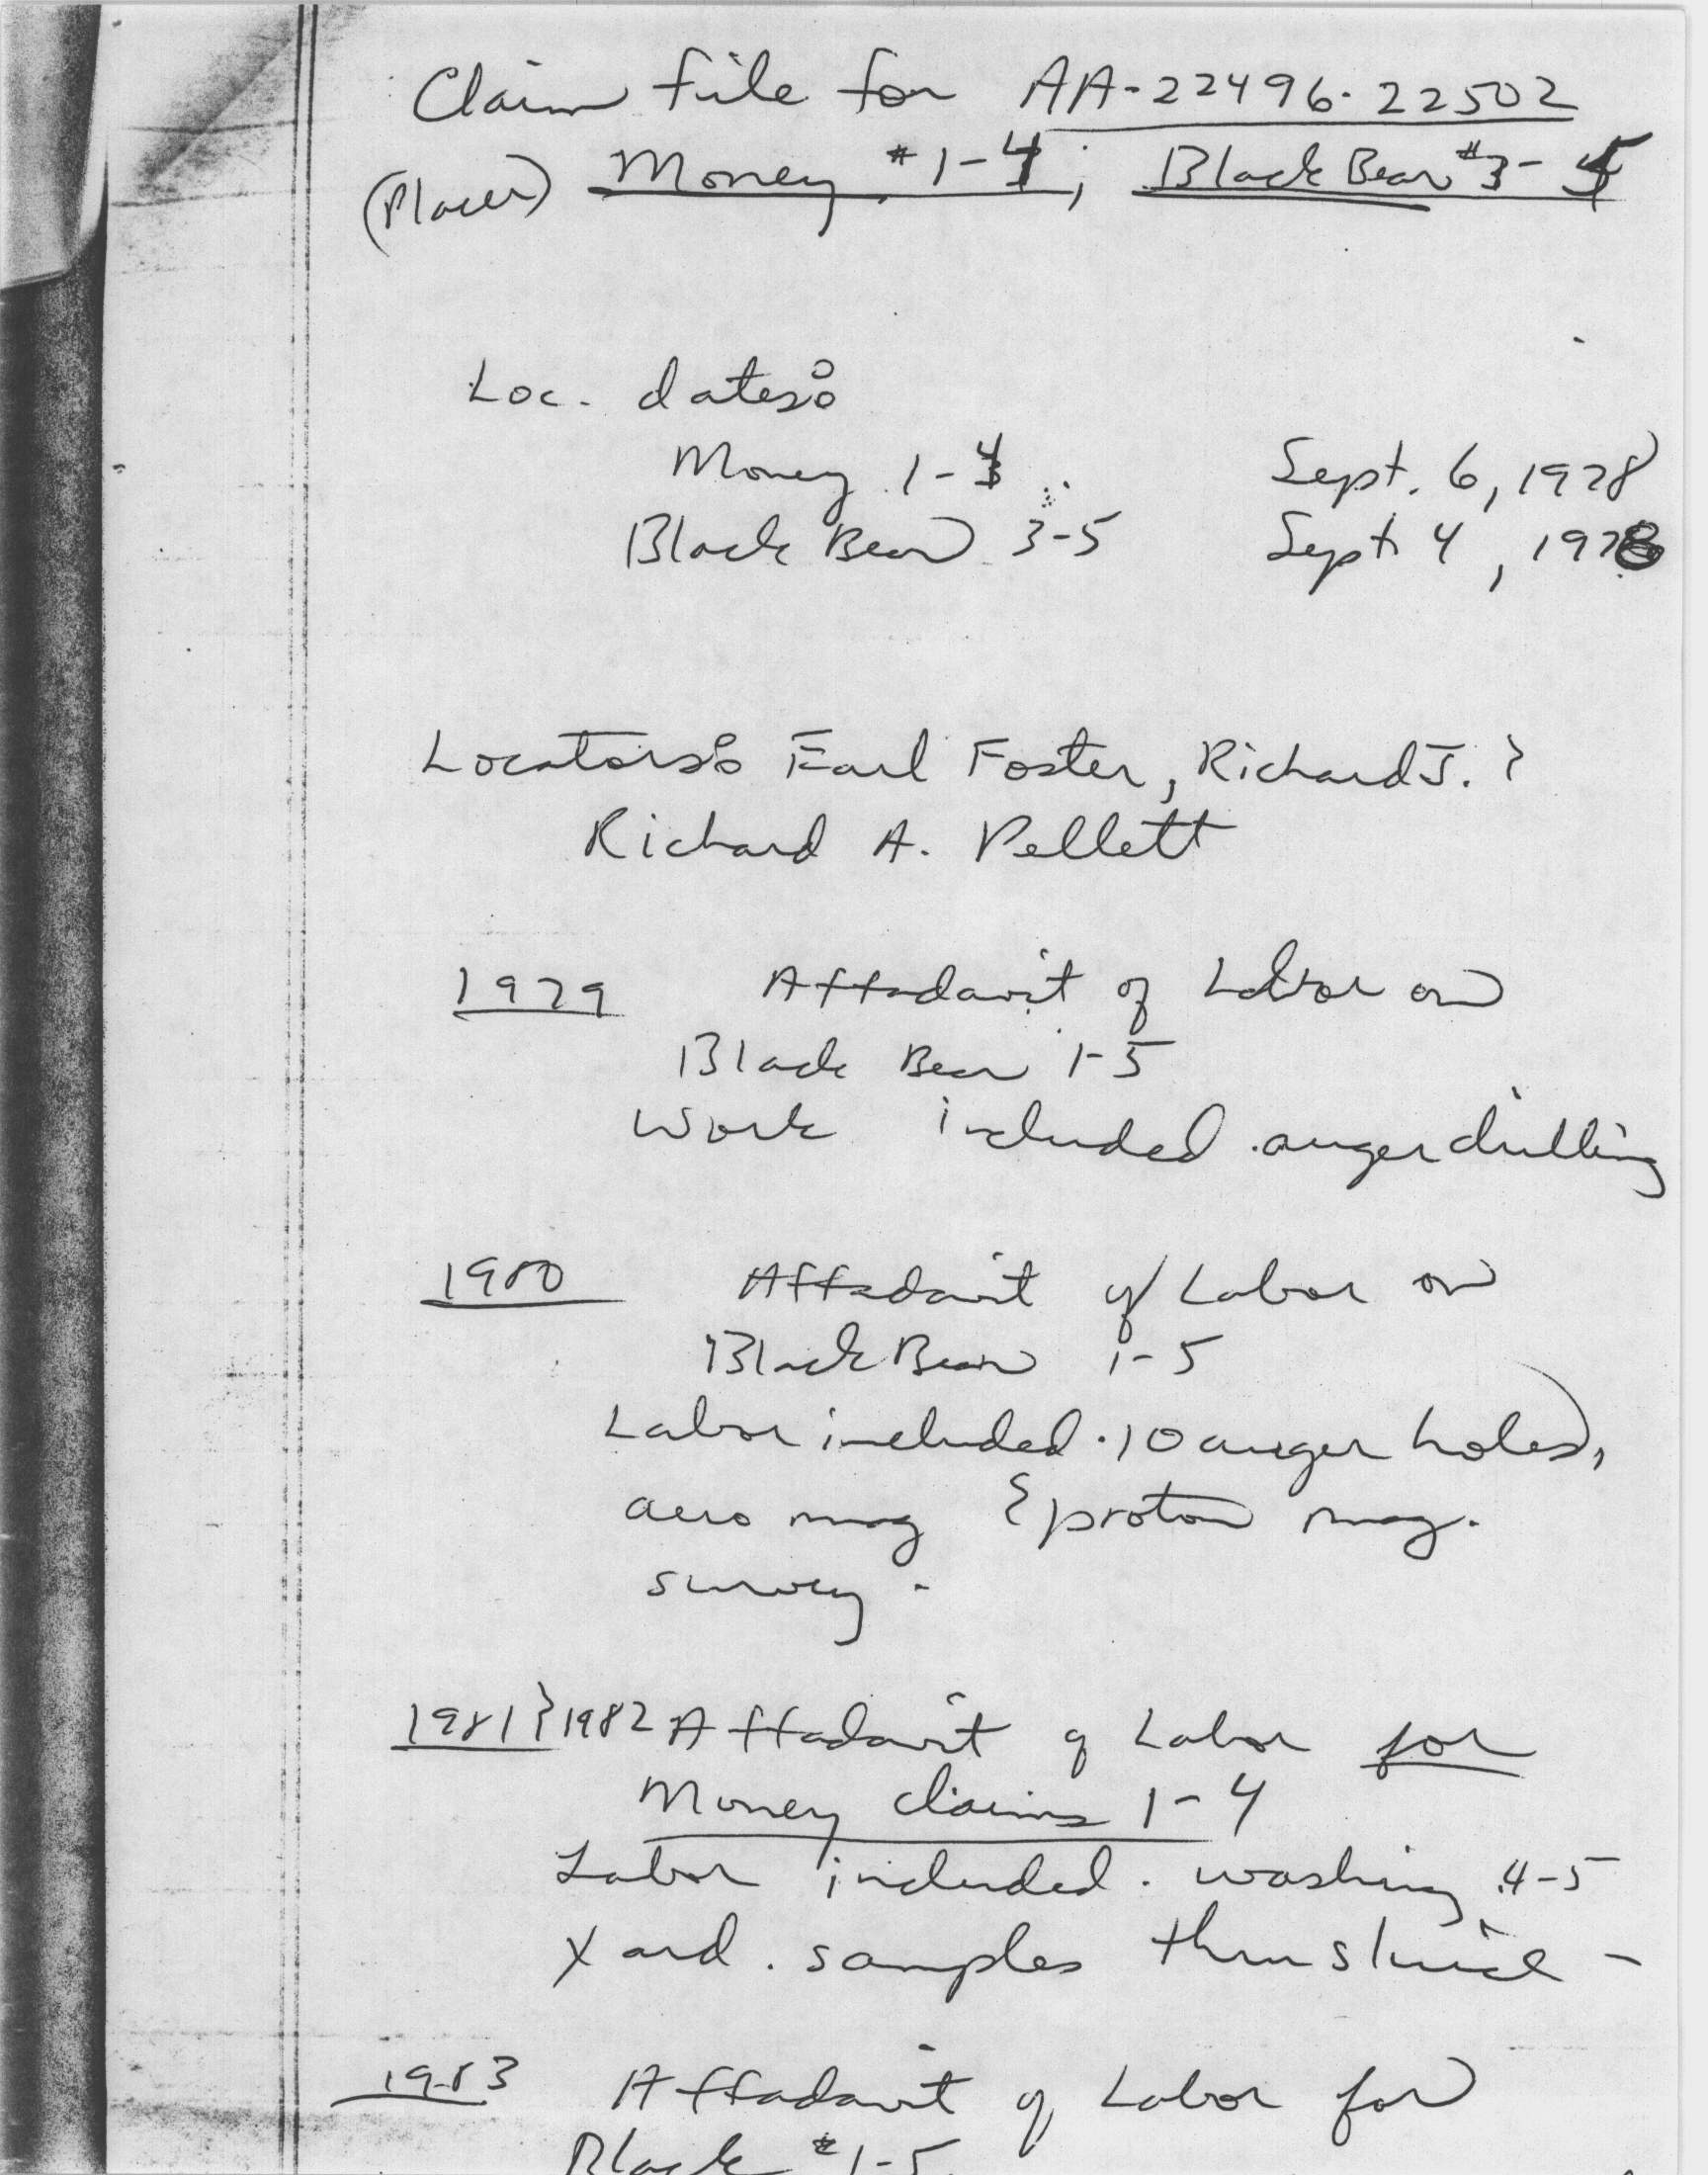 Claim file for AA-22496-22502
(Placer) Money #1-4; Black Bear #3-5
Loc. dates:
Money 1-4 Sept. 6, 1978
Black Bear 3-5 Sept 4, 1978
Locators: Earl Foster, Richard J. &
Richard A. Pellett
1979 Affadavit of Labor on
Black Bear 1-5
Work included auger drilling
1980 Affadavit of Labor on
Black Bear 1-5
Labor included 10 auger holes,
aero mag & proton mag.
survey.
1981 & 1982 Affadavit of Labor for
Money claims 1-4
Labor included washing 4-5
yard samples thru sluice -
1983 Affadavit of Labor for
Black #1-5